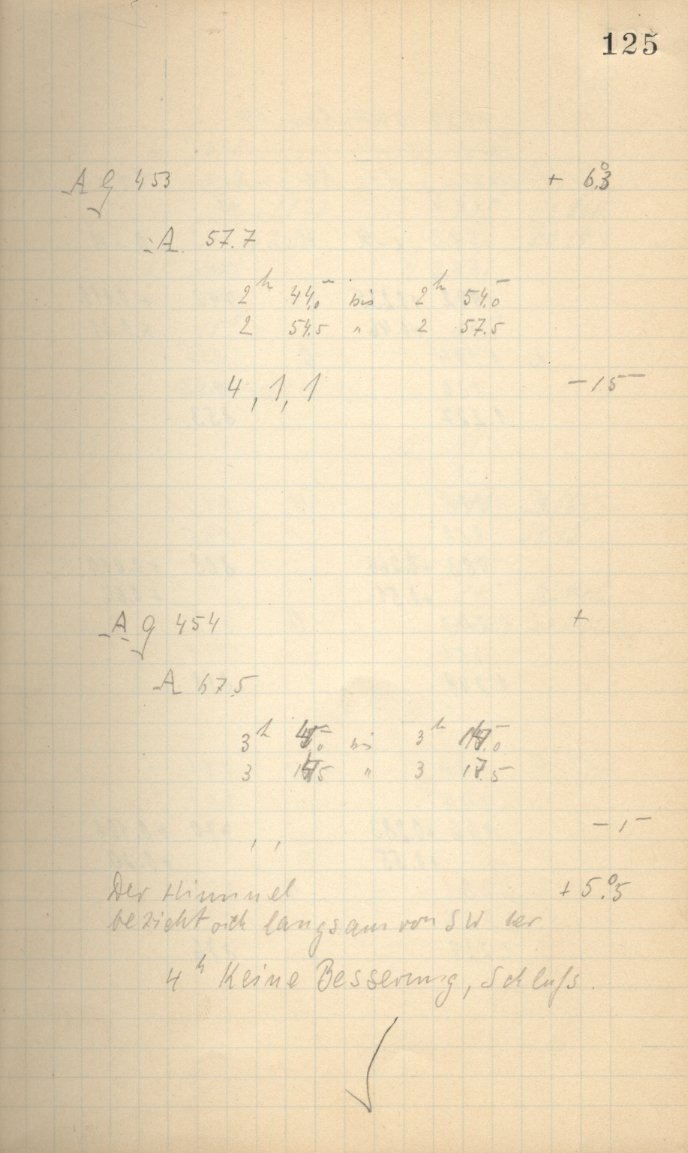 125
A g 453 + 6°.3
A 57.7
2 h 44.0 bis 2 h 54.0
2 54.5 " 2 57.5
4, 1, 1 — 15 —
A g 454 +
A 67.5
3 h bis 3 h
3 " 3 17.5
, ,
— 1 —
Der Himmel + 5°.5
bezieht sich langsam von SW her
4 h Keine Besserung, Schluß.